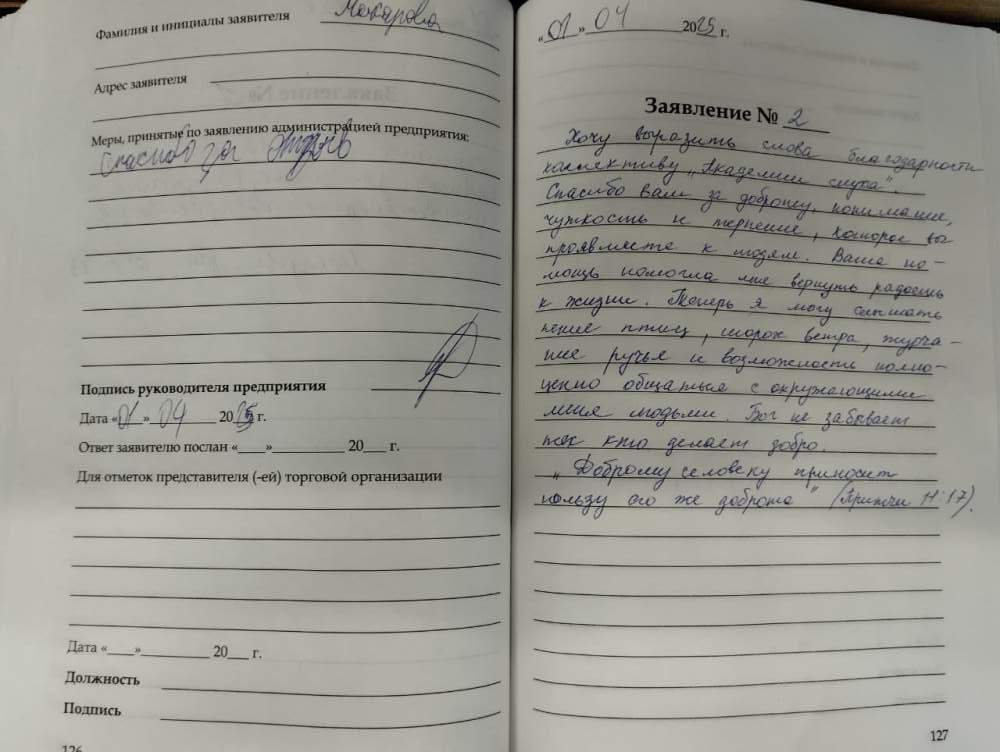 Фамилия и инициалы заявителя Макарова
Адрес заявителя
Меры, принятые по заявлению администрацией предприятия:
Спасибо за отзыв
Подпись руководителя предприятия
Дата «01» 04 2025 г.
Ответ заявителю послан «____» 20___ г.
Для отметок представителя (-ей) торговой организации
Дата «____»__________ 20___ г.
Должность
Подпись
126
«01» 04 2025 г.
Заявление № 2
Хочу выразить слова благодарности
коллективу "Академии слуха".
Спасибо вам за доброту, понимание,
чуткость и терпение, которое вы
проявляете к людям. Ваша по-
мощь помогла мне вернуть радость
к жизни. Теперь я могу слышать
пение птиц, шорох ветра, журча-
ние ручья и возможность полно-
ценно общаться с окружающими
меня людьми. Бог не забывает
тех кто делает добро.
"Доброму человеку приносит
пользу его же доброта" (Притчи 11:17).
127